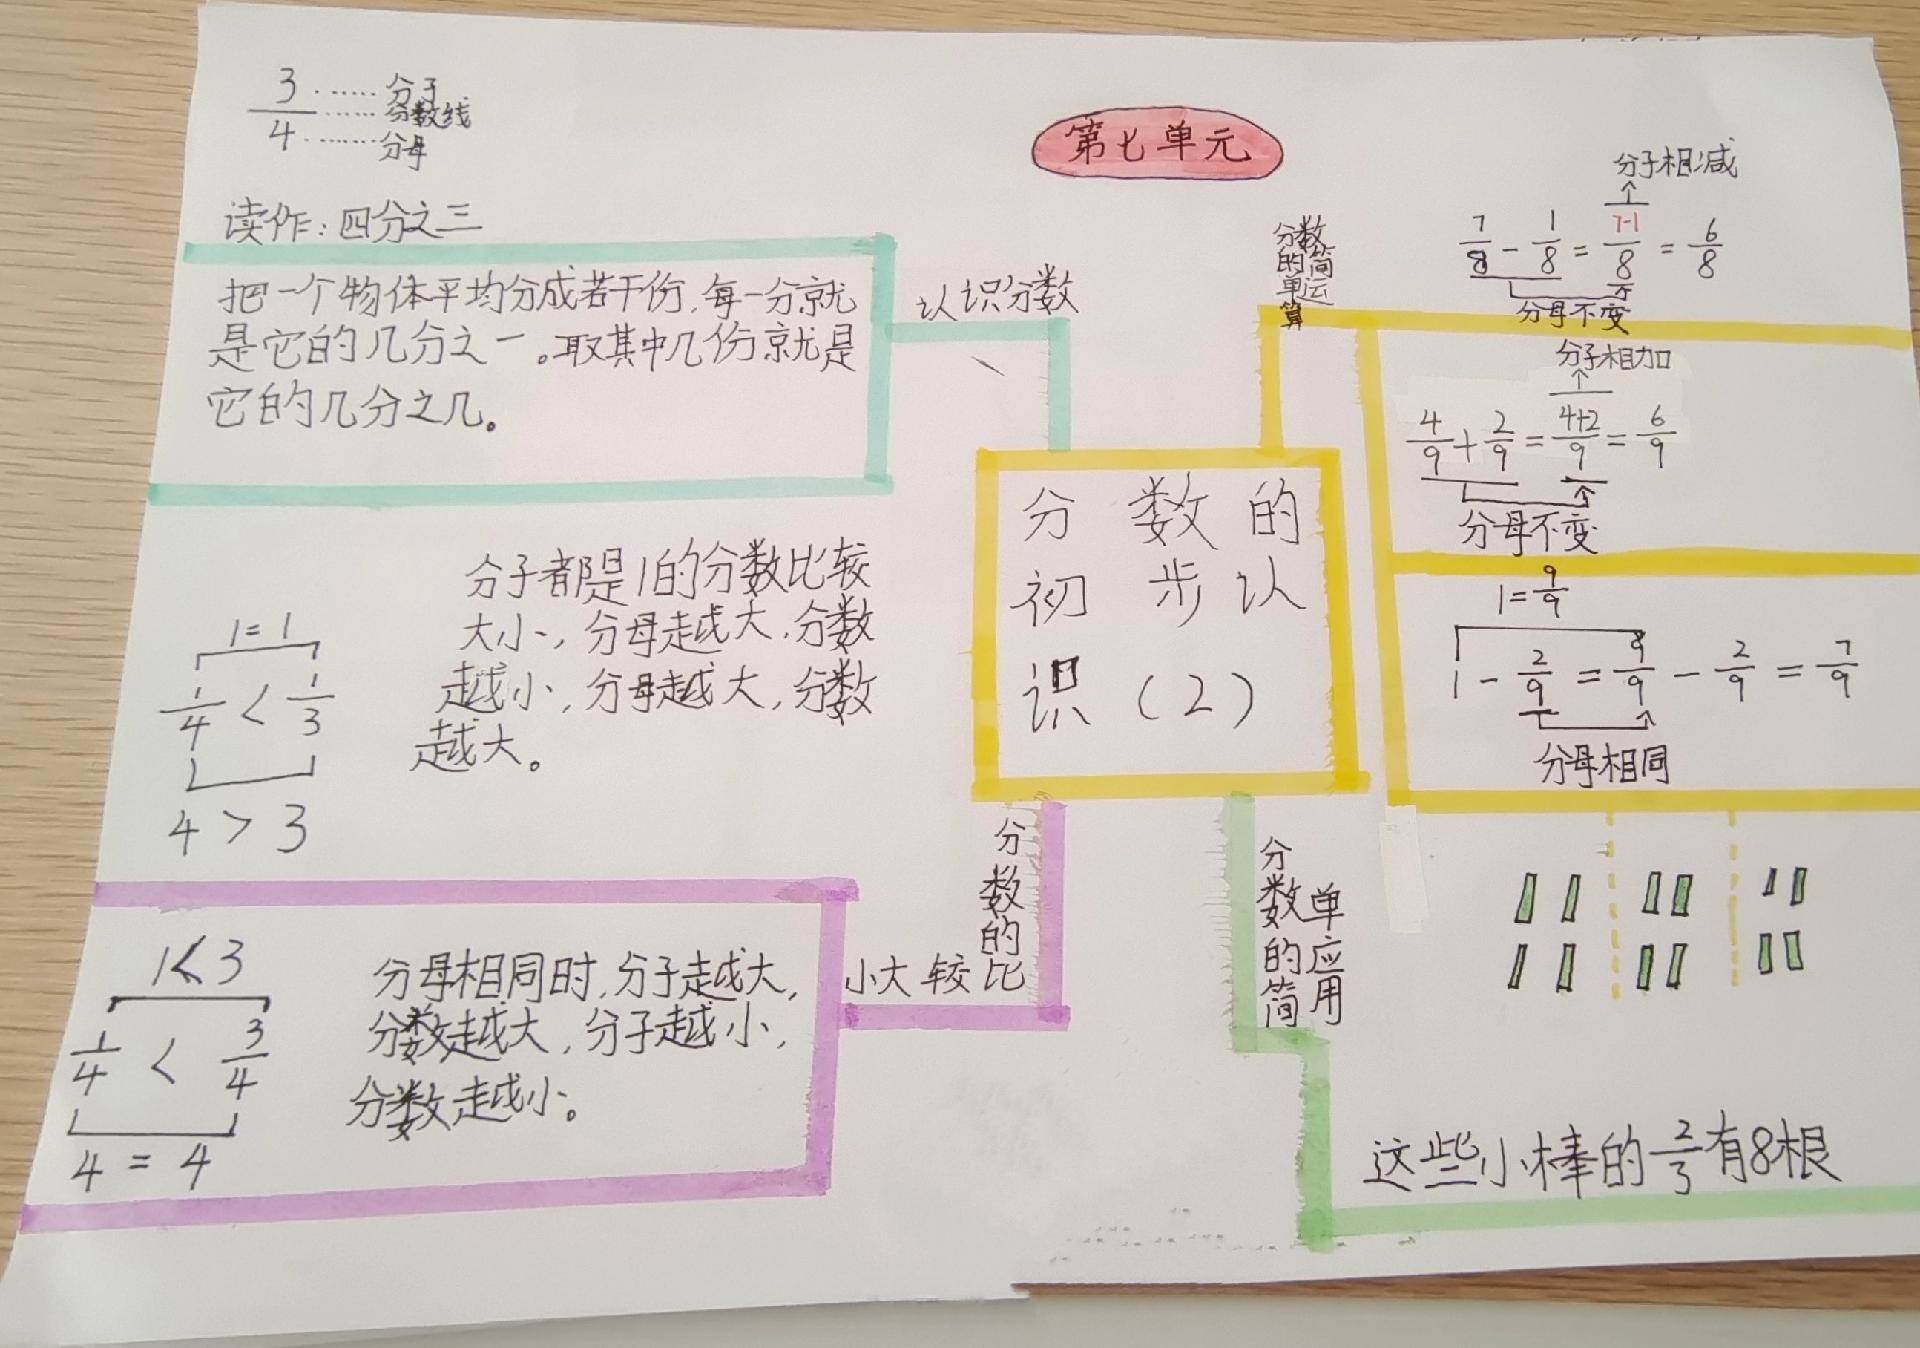 第七单元
3 …… 分子
—— …… 分数线
4 …… 分母
读作：四分之三
认识分数
把一个物体平均分成若干份，每一分就
是它的几分之一。取其中几份就是
它的几分之几。
分子都是1的分数比较
大小，分母越大，分数
越小，分母越大，分数
越大。
1=1
1/4 < 1/3
4 > 3
分数的比
较大小
分母相同时，分子越大，
分数越大，分子越小，
分数越小。
1<3
1/4 < 3/4
4 = 4
分数的
初步认
识（2）
分数的简单运算
分子相减
7/8 - 1/8 = 7-1/8 = 6/8
分母不变
分子相加
4/9 + 2/9 = 4+2/9 = 6/9
分母不变
1=9/9
1 - 2/9 = 9/9 - 2/9 = 7/9
分母相同
分数的简
单应用
这些小棒的2/3有8根